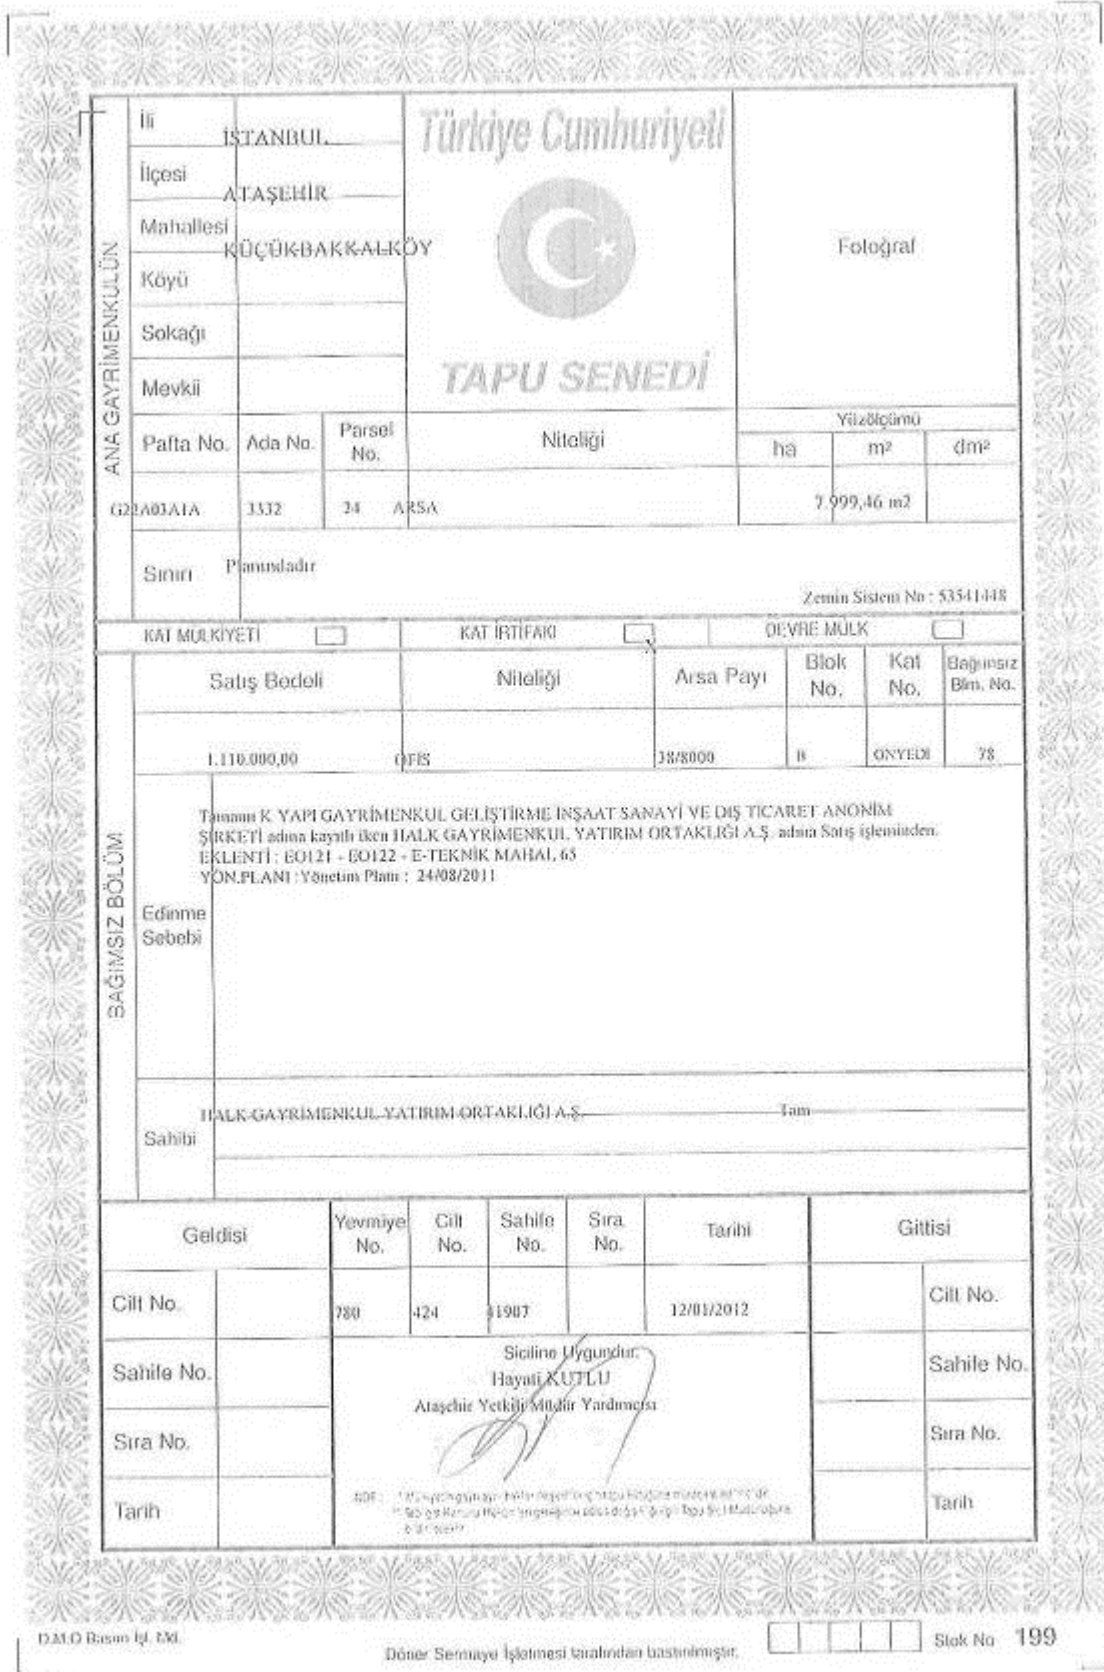 İli
İSTANBUL
İlçesi
ATAŞEHİR
Mahallesi
KÜÇÜKBAKKALKÖY
Köyü
Sokağı
Mevkii
ANA GAYRİMENKULÜN
Türkiye Cumhuriyeti
TAPU SENEDİ
Fotoğraf
Pafta No.
Ada No.
Parsel No.
Niteliği
Yüzölçümü
ha
m²
dm²
3332
ARSA
7.999,46 m2
Sınırı
Planındadır
Zemin Sistem No : 53541448
KAT MÜLKİYETİ
KAT İRTİFAKI
x
DEVRE MÜLK
BAĞIMSIZ BÖLÜM
Satış Bedeli
Niteliği
Arsa Payı
Blok No.
Kat No.
Bağımsız Blm. No.
1.110.000,00
OFİS
38/8000
B
ONYEDİ
78
Edinme Sebebi
Tamamı K YAPI GAYRİMENKUL GELİŞTİRME İNŞAAT SANAYİ VE DIŞ TİCARET ANONİM
ŞİRKETİ adına kayıtlı iken HALK GAYRİMENKUL YATIRIM ORTAKLIĞI A.Ş. adına Satış işleminden.
EKLENTİ : EO121 - EO122 - E-TEKNİK MAHAL 65
YÖN.PLANI : Yönetim Planı : 24/08/2011
Sahibi
HALK GAYRİMENKUL YATIRIM ORTAKLIĞI A.Ş.
Tam
Geldisi
Yevmiye No.
Cilt No.
Sahife No.
Sıra No.
Tarihi
Gittisi
Cilt No.
780
424
41907
12/01/2012
Cilt No.
Sahife No.
Siciline Uygundur.
Hayati KUTLU
Ataşehir Yetkili Müdür Yardımcısı
Sahife No.
Sıra No.
Sıra No.
Tarih
Tarih
NOT :
D.M.O Basım İşl. Md.
Döner Sermaye İşletmesi tarafından bastırılmıştır.
Stok No 199